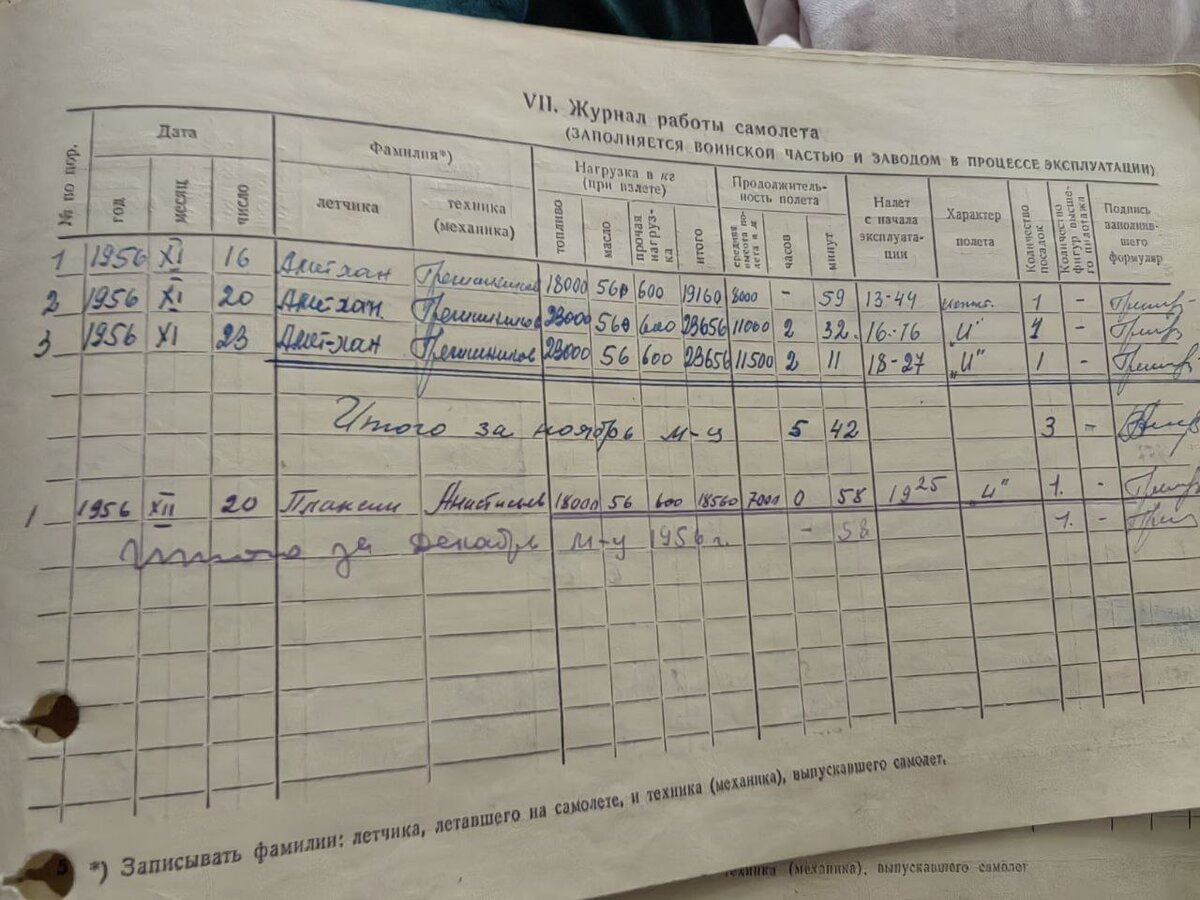 VII. Журнал работы самолета
(ЗАПОЛНЯЕТСЯ ВОИНСКОЙ ЧАСТЬЮ И ЗАВОДОМ В ПРОЦЕССЕ ЭКСПЛУАТАЦИИ)
№ по пор.
Дата
год
месяц
число
Фамилия*)
летчика
техника (механика)
Нагрузка в кг (при взлете)
топливо
масло
прочая нагруз-ка
итого
Продолжитель-ность полета
средняя высота по-лета в м
часов
минут
Налет с начала эксплуата-ции
Характер полета
Количество посадок
Количество фигур высше-го пилотажа
Подпись заполнив-шего формуляр
1 1956 XI 16 Амет-хан 18000 560 600 19160 8000 - 59 13-44 1 -
2 1956 XI 20 Амет-хан 23000 560 600 23656 11000 2 32. 16-16 „И" 1 -
3 1956 XI 23 Амет-хан 23000 56 600 23656 11500 2 11 18-27 „И" 1 -
Итого за ноябрь м-ц 5 42 3 -
1 1956 XII 20 Плаксин 18000 56 600 18560 7000 0 58 19 25 „И" 1. -
Итого за декабрь м-ц 1956 г. - 58 1. -
*) Записывать фамилии: летчика, летавшего на самолете, и техника (механика), выпускавшего самолет.
техника (механика), выпускавшего самолет